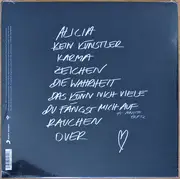 ALICIA
KEIN KÜNSTLER
KARMA
ZEICHEN
DIE WAHRHEIT
DAS KÖNN NICH VIELE
DU FÄNGST MICH AUF
RAUCHEN
OVER